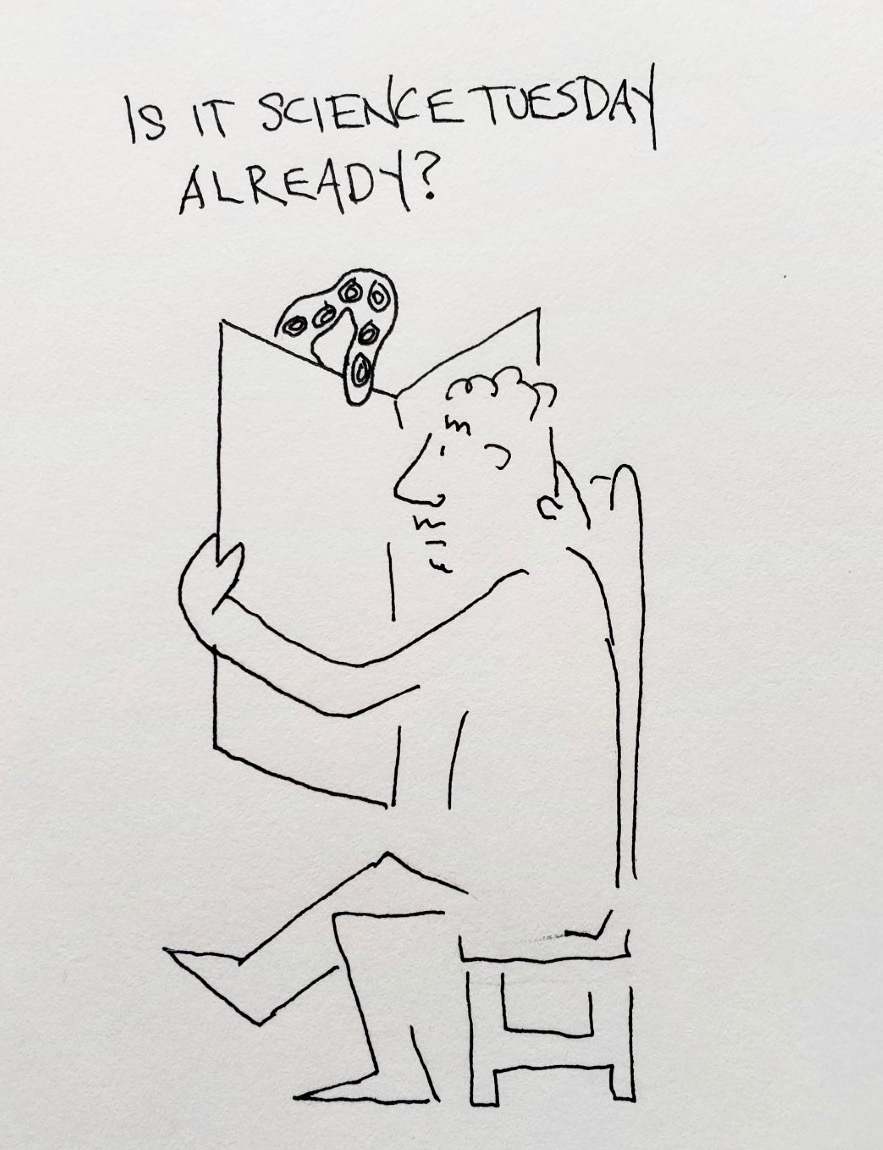 IS IT SCIENCE TUESDAY
ALREADY?